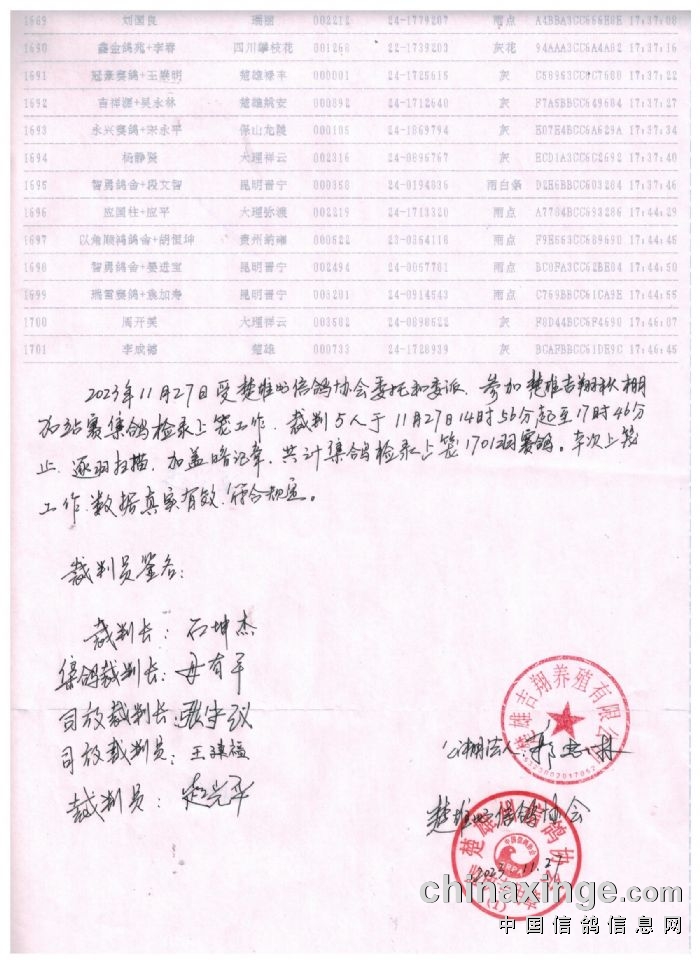 1689 刘国良 瑞丽 002212 24-1779207 雨点 17:37:08
1690 鑫金鸽苑+李春 四川攀枝花 001268 22-1739203 灰花 17:37:16
1691 冠豪赛鸽+王崇明 楚雄禄丰 000001 24-1725615 灰 17:37:22
1692 吉祥源+吴永林 楚雄姚安 000892 24-1712640 灰 17:37:27
1693 永兴赛鸽+宋永平 保山龙陵 000105 24-1869794 灰 17:37:34
1694 杨静贤 大理祥云 002316 24-0896767 灰 17:37:40
1695 智勇鸽舍+段文智 昆明晋宁 000358 24-0194836 雨白条 17:37:46
1696 应国柱+应平 大理弥渡 002219 24-1713320 雨点 17:44:29
1697 贵州纳雍 000622 23-0864116 雨点 17:44:46
1698 智勇鸽舍+晏进宝 昆明晋宁 002494 24-0067701 雨点 17:44:50
1699 昆明晋宁 24-0914543 雨点 17:44:55
1700 周开美 大理祥云 003502 24-0898622 灰 17:46:07
1701 李成德 楚雄 000733 24-1728939 灰 17:46:45
2023年11月27日受楚雄州信鸽协会委托和委派，参加楚雄吉翔秋棚
加站赛集鸽检录上笼工作，裁判5人于11月27日14时56分起至17时46分
止，逐羽扫描，加盖暗记章，共计集鸽检录上笼1701羽赛鸽。本次上笼
工作，数据真实有效，符合规定。
裁判员签名：
裁判长：石坤杰
集鸽裁判长：毋有平
司放裁判长：
司放裁判员：王建福
裁判员：赵光华
楚雄吉翔养殖有限公司
公棚法人：郭
楚雄州信鸽协会
楚雄州信鸽协会
中国信鸽协会
CRPA
2023.11.27
chinaxinge.com
中国信鸽信息网